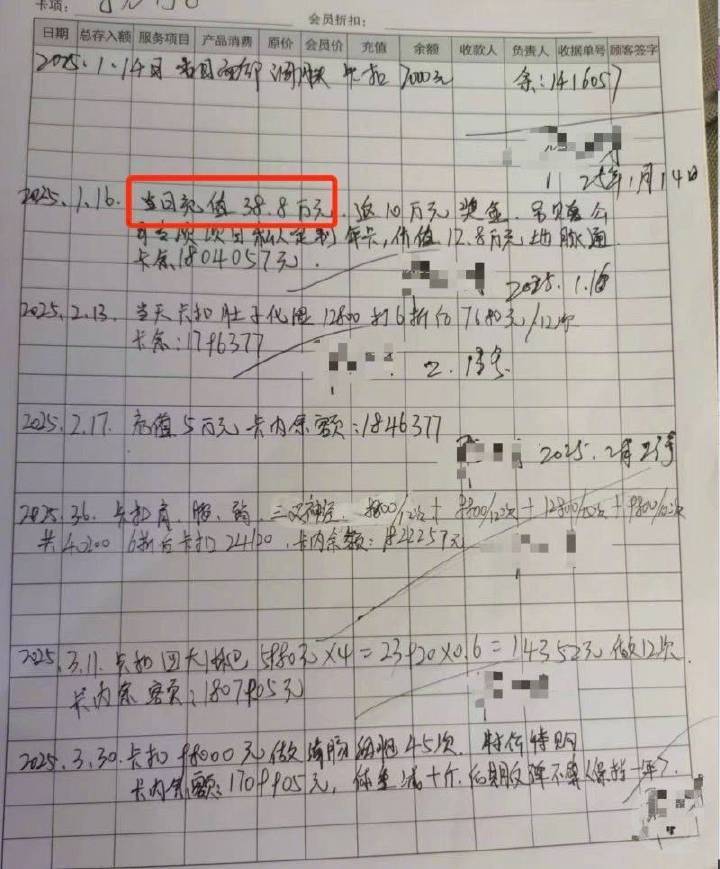 卡项:
会员折扣:
日期 总存入额 服务项目 产品消费 原价 会员价 充值 余额 收款人 负责人 收据单号 顾客签字
2025.1.14日 当日 卡扣 7000元 余:1416057
25年1月14日
2025.1.16. 当日充值38.8万元.返10万元奖金.
年卡,价值12.8万元地脉通
卡余1804057元.
2025.1.16
2025.2.13. 当天卡扣肚子化湿12800打6折后7680元/12次
卡余:1796377
2.13号
2025.2.17. 充值5万元卡内余额:1846377
2025.2月
2025.3.6. 卡扣肩、腰、 三叉神经. 9800/12次+12800/12次+9800/12次
共40200 6折后卡扣24120.卡内余额:1822257元
2025.3.11.卡扣四大 5980元×4=23920×0.6=14352元做12次.
卡内余额:1807905元
2025.3.30.卡扣98000元做 45次. 特价特购
卡内余额:1709905元,体重减十斤.后期反弹不算(保持一年).